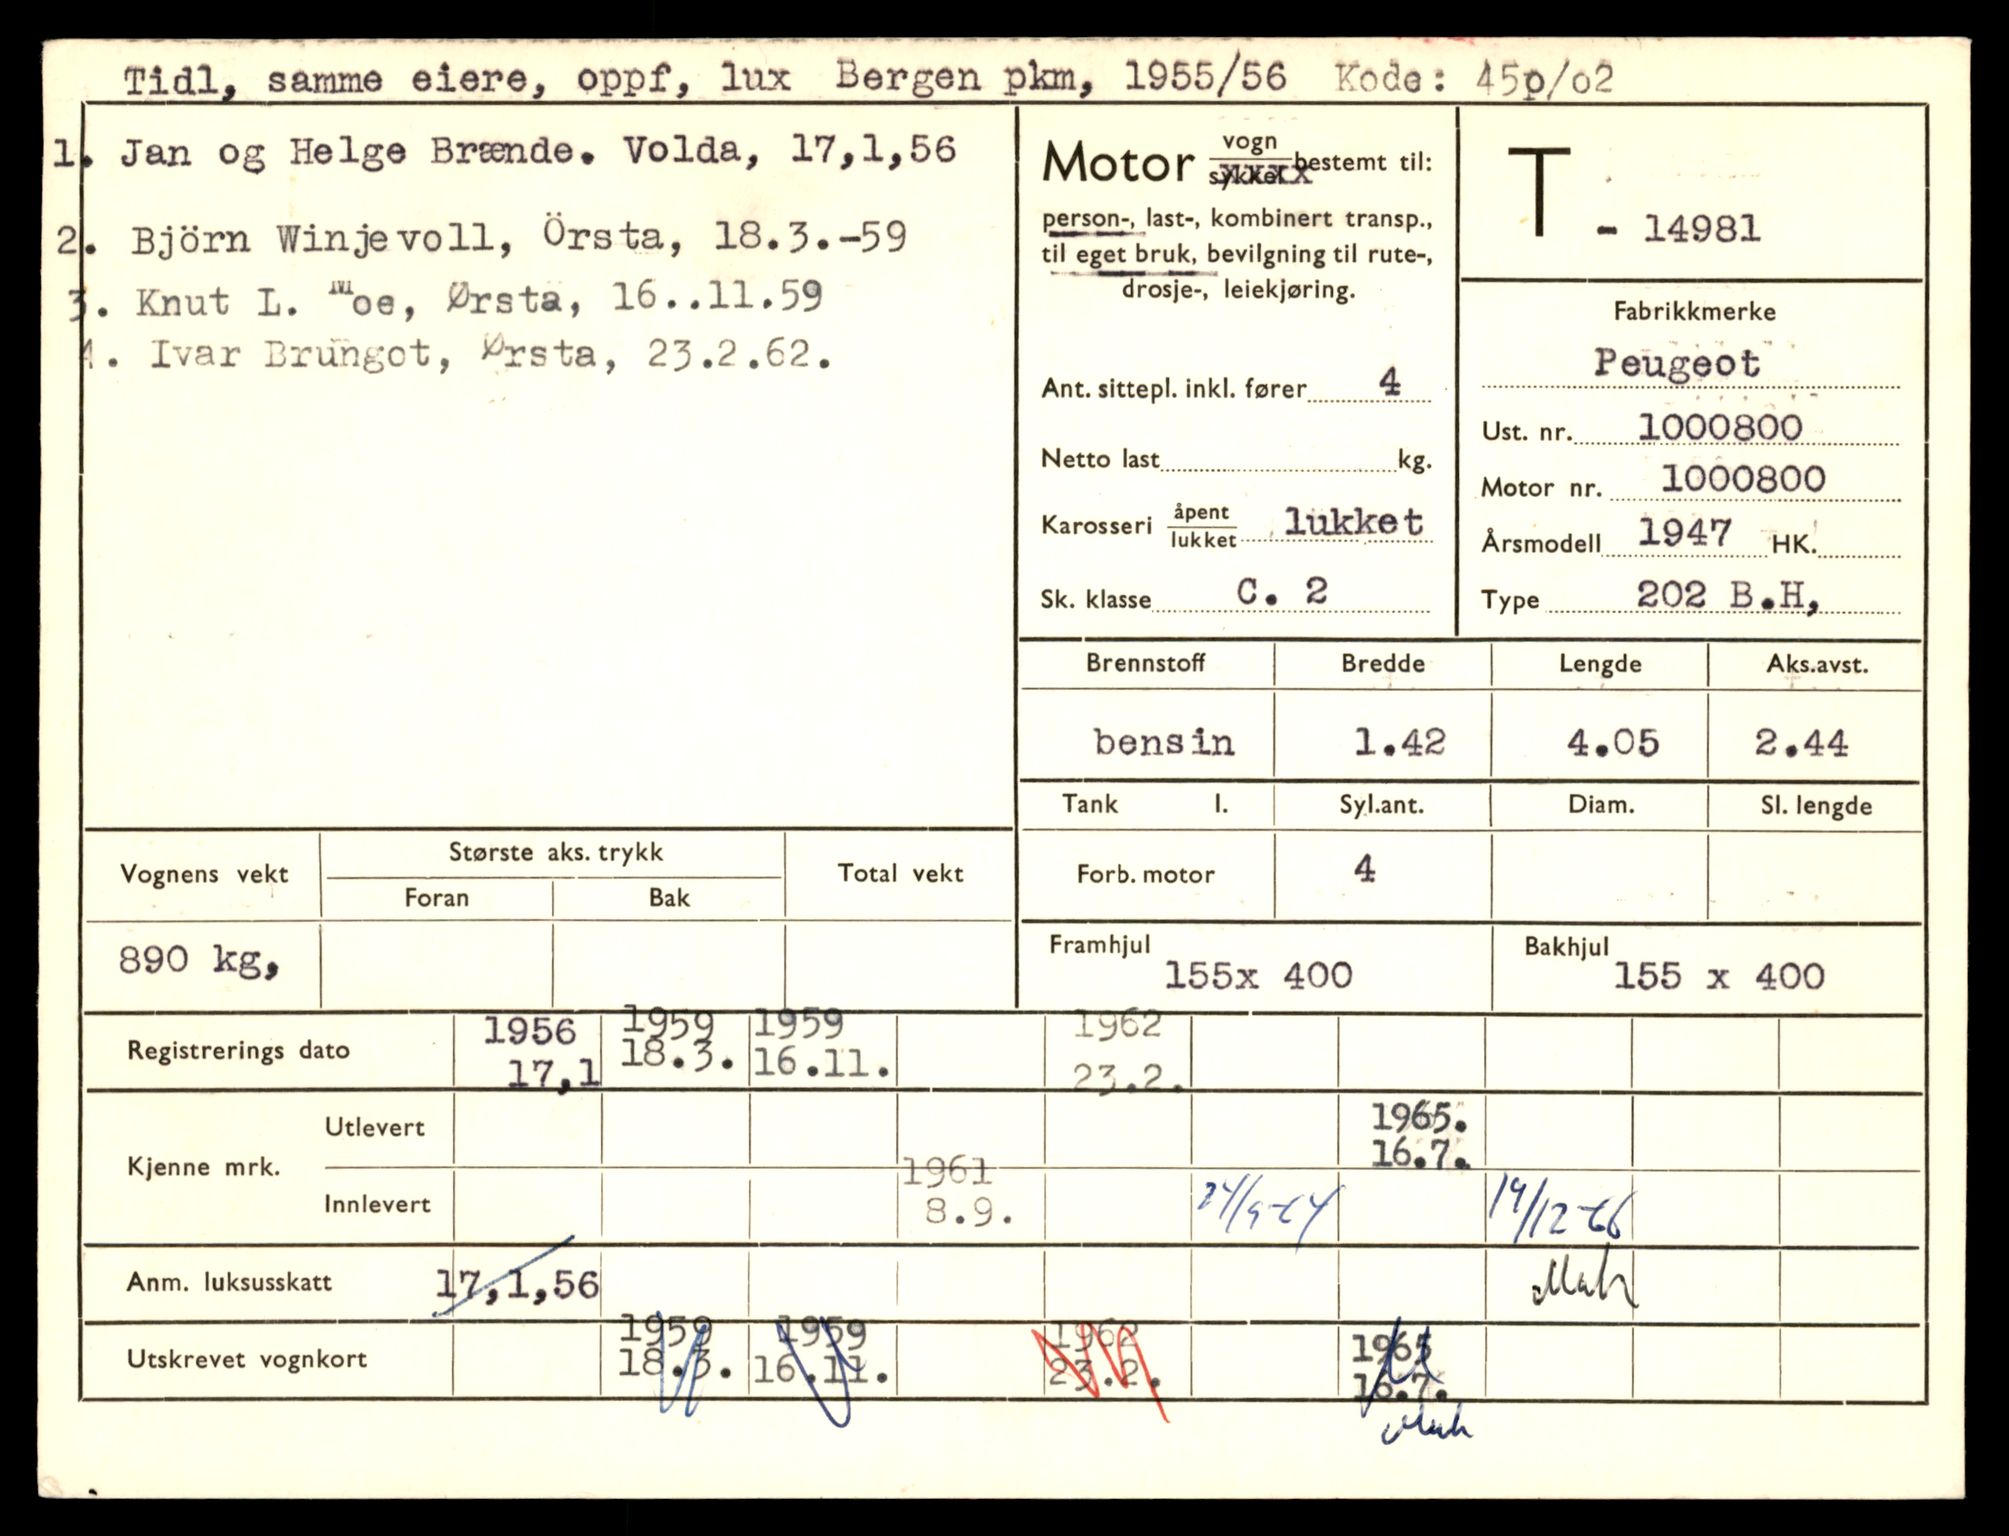 Tidl, samme eiere, oppf, lux Bergen pkm, 1955/56 Kode: 45p/o2
1. Jan og Helge Brænde. Volda, 17,1,56
2. Björn Winjevoll, Örsta, 18.3.-59
3. Knut L. Moe, Ørsta, 16..11.59
4. Ivar Brungot, Ørsta, 23.2.62.
Motor vogn sykkel bestemt til:
person-, last-, kombinert transp.,
til eget bruk, bevilgning til rute-,
drosje-, leiekjøring.
Ant. sittepl. inkl. fører 4
Netto last kg.
Karosseri åpent lukket lukket
Sk. klasse C. 2
T - 14981
Fabrikkmerke
Peugeot
Ust. nr. 1000800
Motor nr. 1000800
Årsmodell 1947 HK.
Type 202 B.H,
Brennstoff Bredde Lengde Aks.avst.
bensin 1.42 4.05 2.44
Tank l. Syl.ant. Diam. Sl. lengde
Forb. motor 4
Framhjul 155x 400 Bakhjul 155 x 400
Vognens vekt Største aks. trykk Total vekt
Foran Bak
890 kg,
Registrerings dato 1956 1959 1959 1962
17,1 18.3. 16.11. 23.2.
Kjenne mrk. Utlevert 1965.
16.7.
Innlevert 1961 24/9-64 14/12-66
8.9.
Anm. luksusskatt 17,1,56
Utskrevet vognkort 1959 1959 1962 1965
18.3. 16.11. 23.2. 16.7.